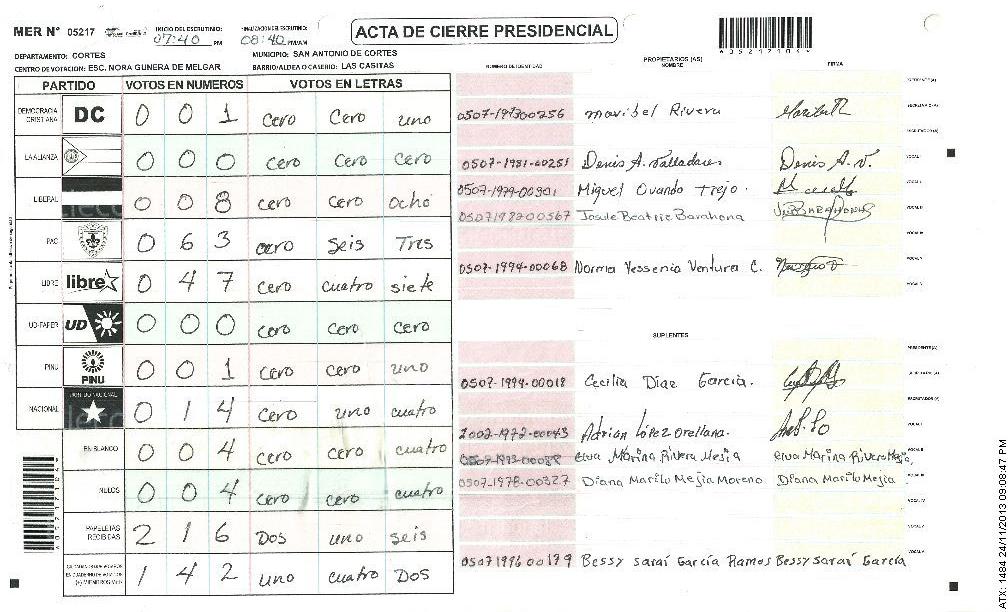 MER Nº 05217
INICIO DEL ESCRUTINIO: 07:40 PM
FINALIZACION DEL ESCRUTINIO: 08:40 PM/AM
ACTA DE CIERRE PRESIDENCIAL
DEPARTAMENTO: CORTES
MUNICIPIO: SAN ANTONIO DE CORTES
CENTRO DE VOTACION: ESC. NORA GUNERA DE MELGAR
BARRIO/ALDEA O CASERIO: LAS CASITAS
PARTIDO VOTOS EN NUMEROS VOTOS EN LETRAS
DEMOCRACIA CRISTIANA DC 0 0 1 cero cero uno
LA ALIANZA 0 0 0 cero cero cero
LIBERAL 0 0 8 cero cero ocho
PAC 0 6 3 cero seis Tres
LIBRE libre 0 4 7 cero cuatro siete
UD-FAPER UD 0 0 0 cero cero cero
PINU PINU 0 0 1 cero cero uno
NACIONAL PARTIDO NACIONAL 0 1 4 cero uno cuatro
EN BLANCO 0 0 4 cero cero cuatro
NULOS 0 0 4 cero cero cuatro
PAPELETAS RECIBIDAS 2 1 6 Dos uno seis
1 4 2 uno cuatro Dos
NUMERO DE IDENTIDAD PROPIETARIOS (AS) NOMBRE FIRMA
maribel Rivera
0507-1981-00251 Denis A. Valladares Denis A. V.
0507-1979-00301 Miguel Ovando Trejo.
0507198700567 Josule Beatriz Barahona
0507-1994-00068 Norma Yessenia Ventura C.
SUPLENTES
0507-1994-00018 Cecilia Diaz Garcia.
2002-1972-00043 Adrian López Orellana.
elva Marina Rivera Mejia elva Marina Rivera Mejia
0507-1978-00327 Diana Marilo Mejia Moreno Diana Marilo Mejia
0507199600179 Bessy Saraí García Ramos Bessy Saraí García
ATX: 1484 24/11/2013 09:08:47 PM